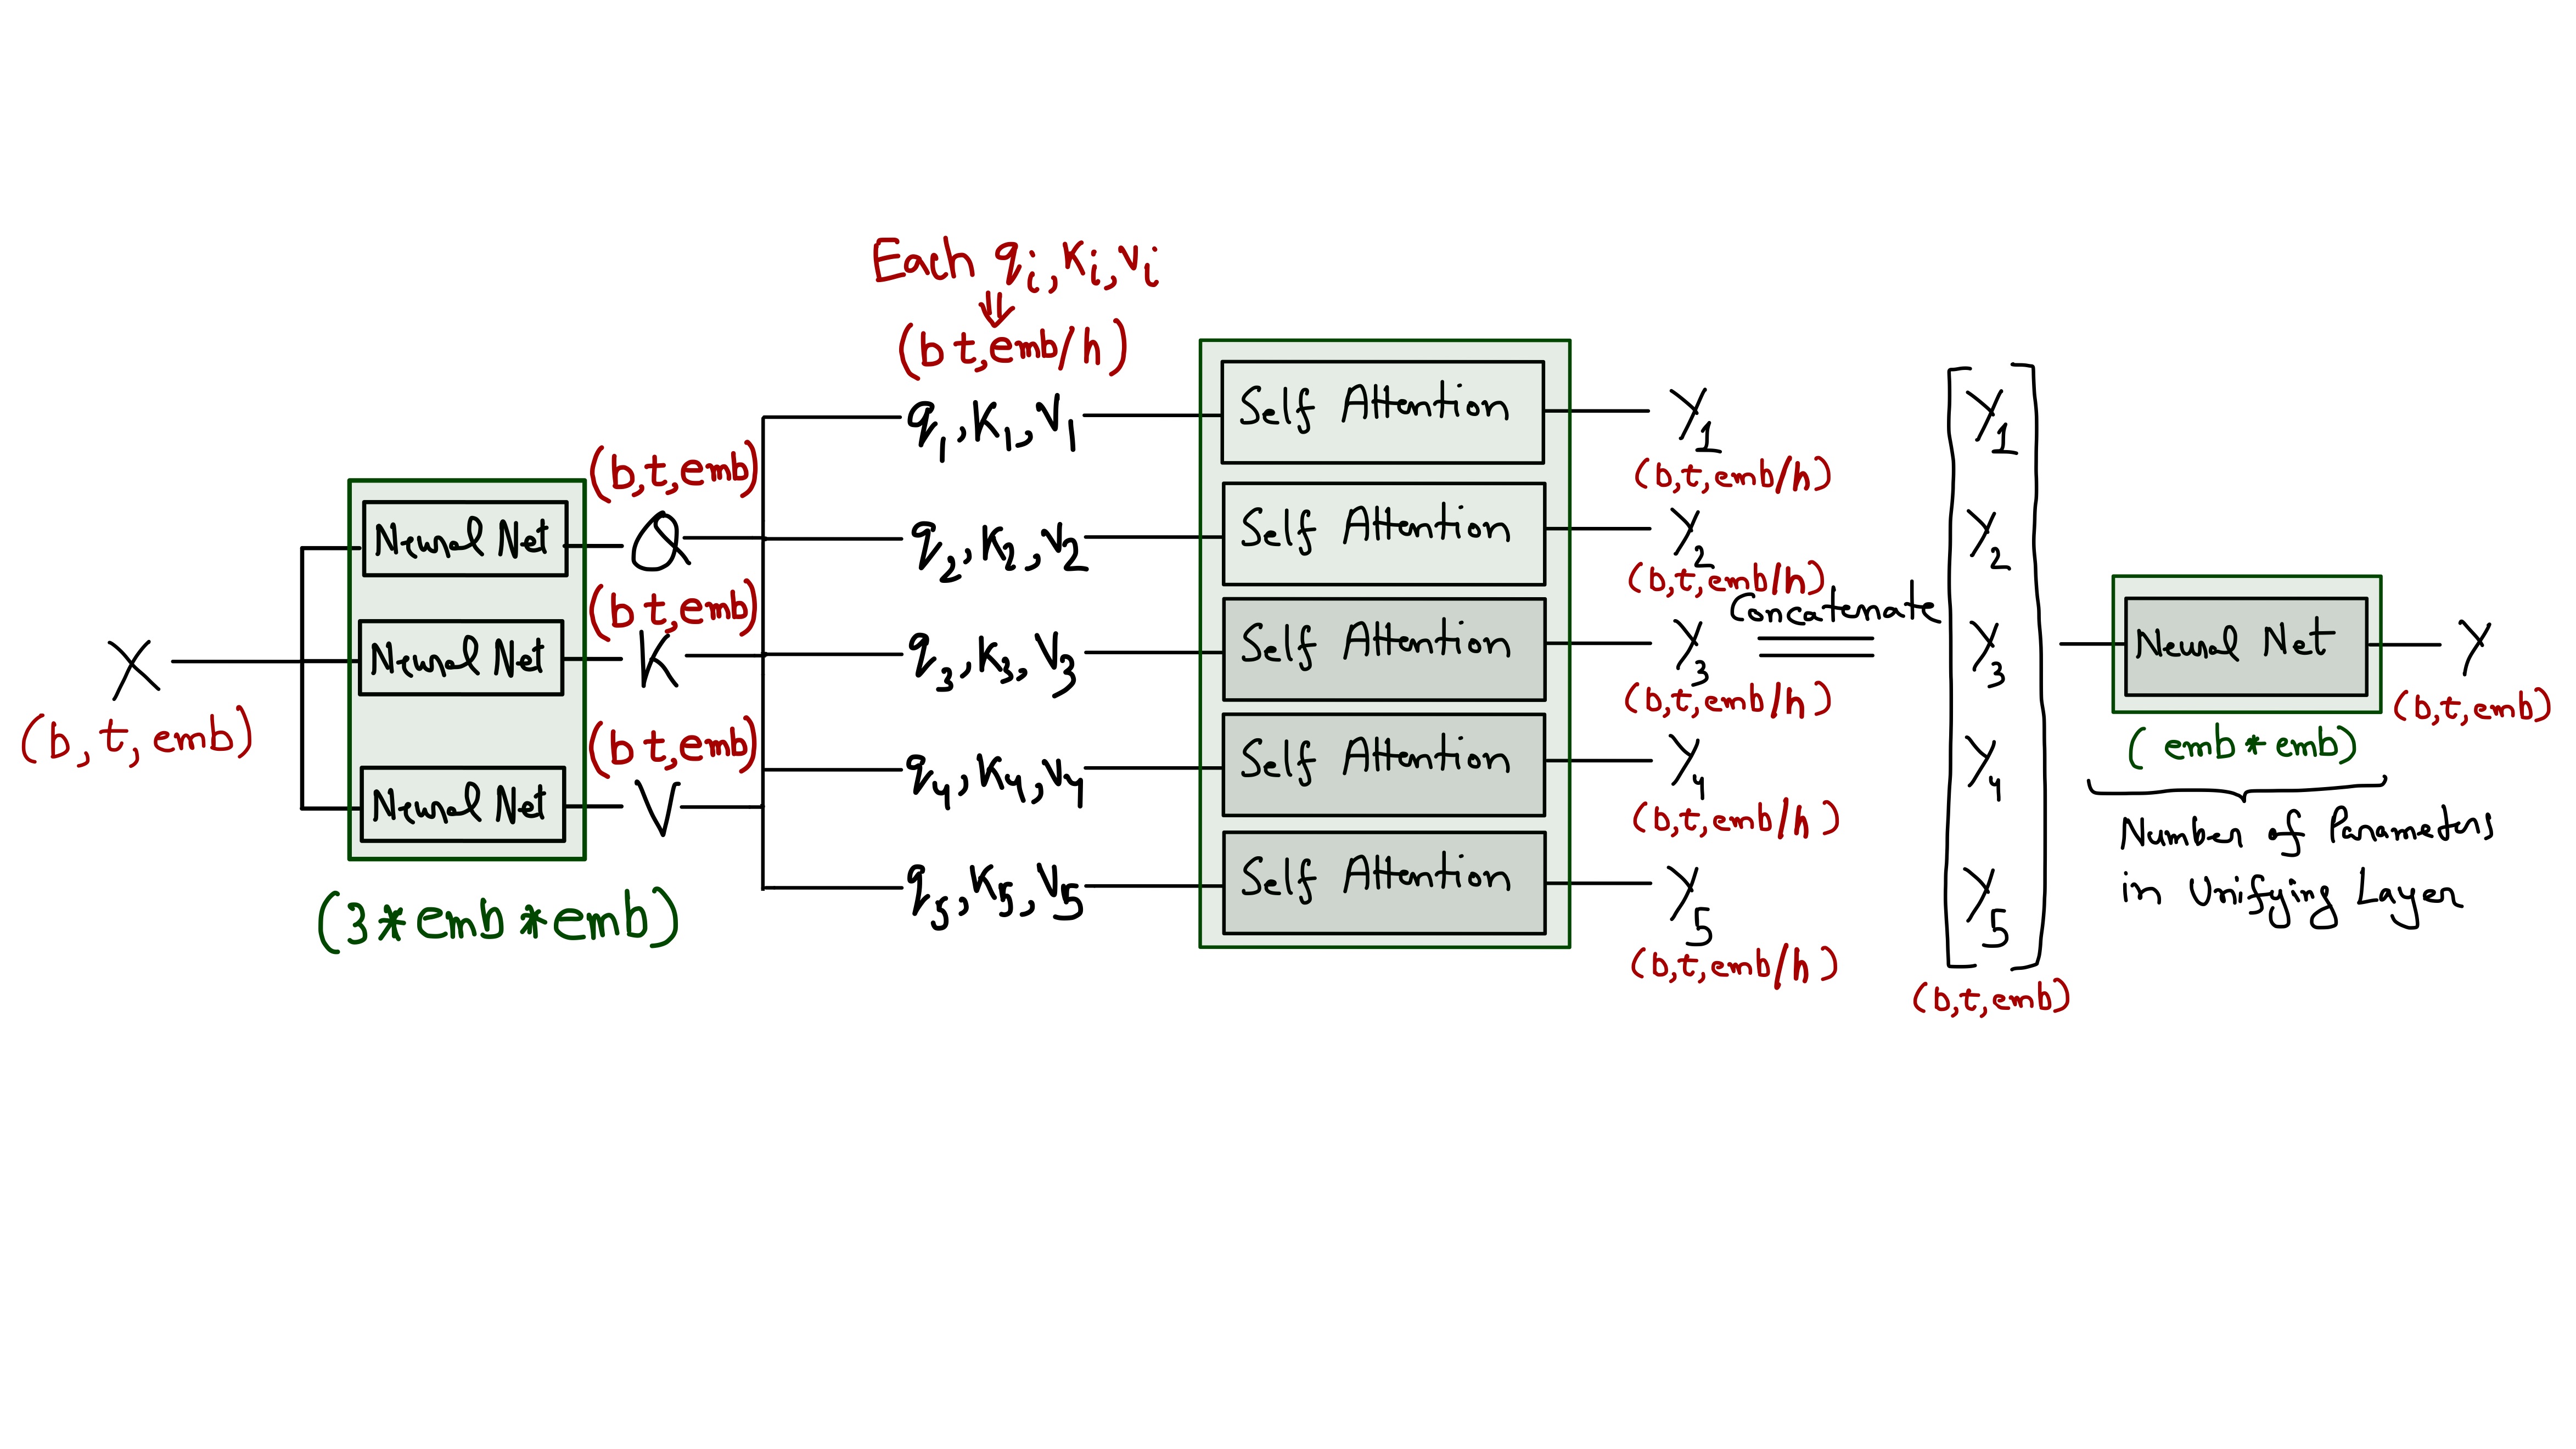 X
(b, t, emb)
Neural Net
Neural Net
Neural Net
(3*emb*emb)
(b,t,emb)
Q
(b t,emb)
K
(b t,emb)
V
Each qi, Ki, vi
⇓
(b t,emb/h)
q1, K1, V1
q2, K2, V2
q3, K3, V3
q4, K4, V4
q5, K5, V5
Self Attention
Self Attention
Self Attention
Self Attention
Self Attention
Y1
(b,t,emb/h)
Y2
(b,t,emb/h)
Y3
(b,t,emb/h)
Y4
(b,t,emb/h)
Y5
(b,t,emb/h)
Concatenate
Y1
Y2
Y3
Y4
Y5
(b,t,emb)
Neural Net
(emb*emb)
Number of Parameters
in Unifying Layer
Y
(b,t,emb)